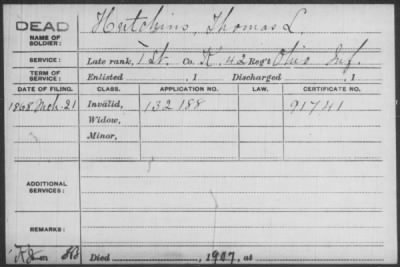 DEAD Hutchins, Thomas L
NAME OF SOLDIER:
SERVICE: Late rank, 1 Lt. Co. K, 42 Reg't Ohio Inf.
TERM OF SERVICE: Enlisted , 1 Discharged , 1
DATE OF FILING. CLASS. APPLICATION NO. LAW. CERTIFICATE NO.
1868 Mch. 21 Invalid, 132 188 91741
Widow,
Minor,
ADDITIONAL SERVICES:
REMARKS:
Died , 1907, at